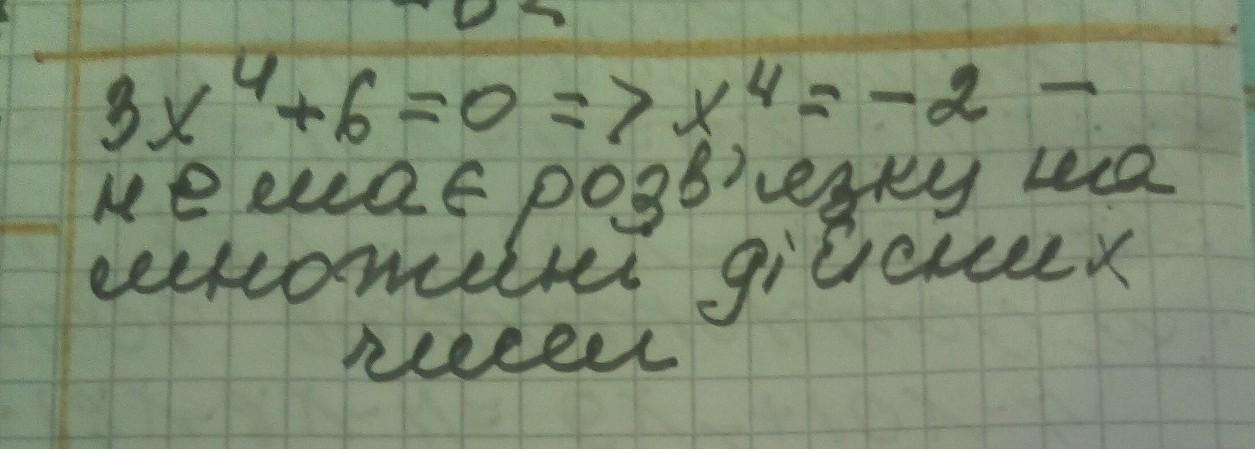 3x⁴+6=0 => x⁴=-2 -
не має розв'язку на
множині дійсних
чисел